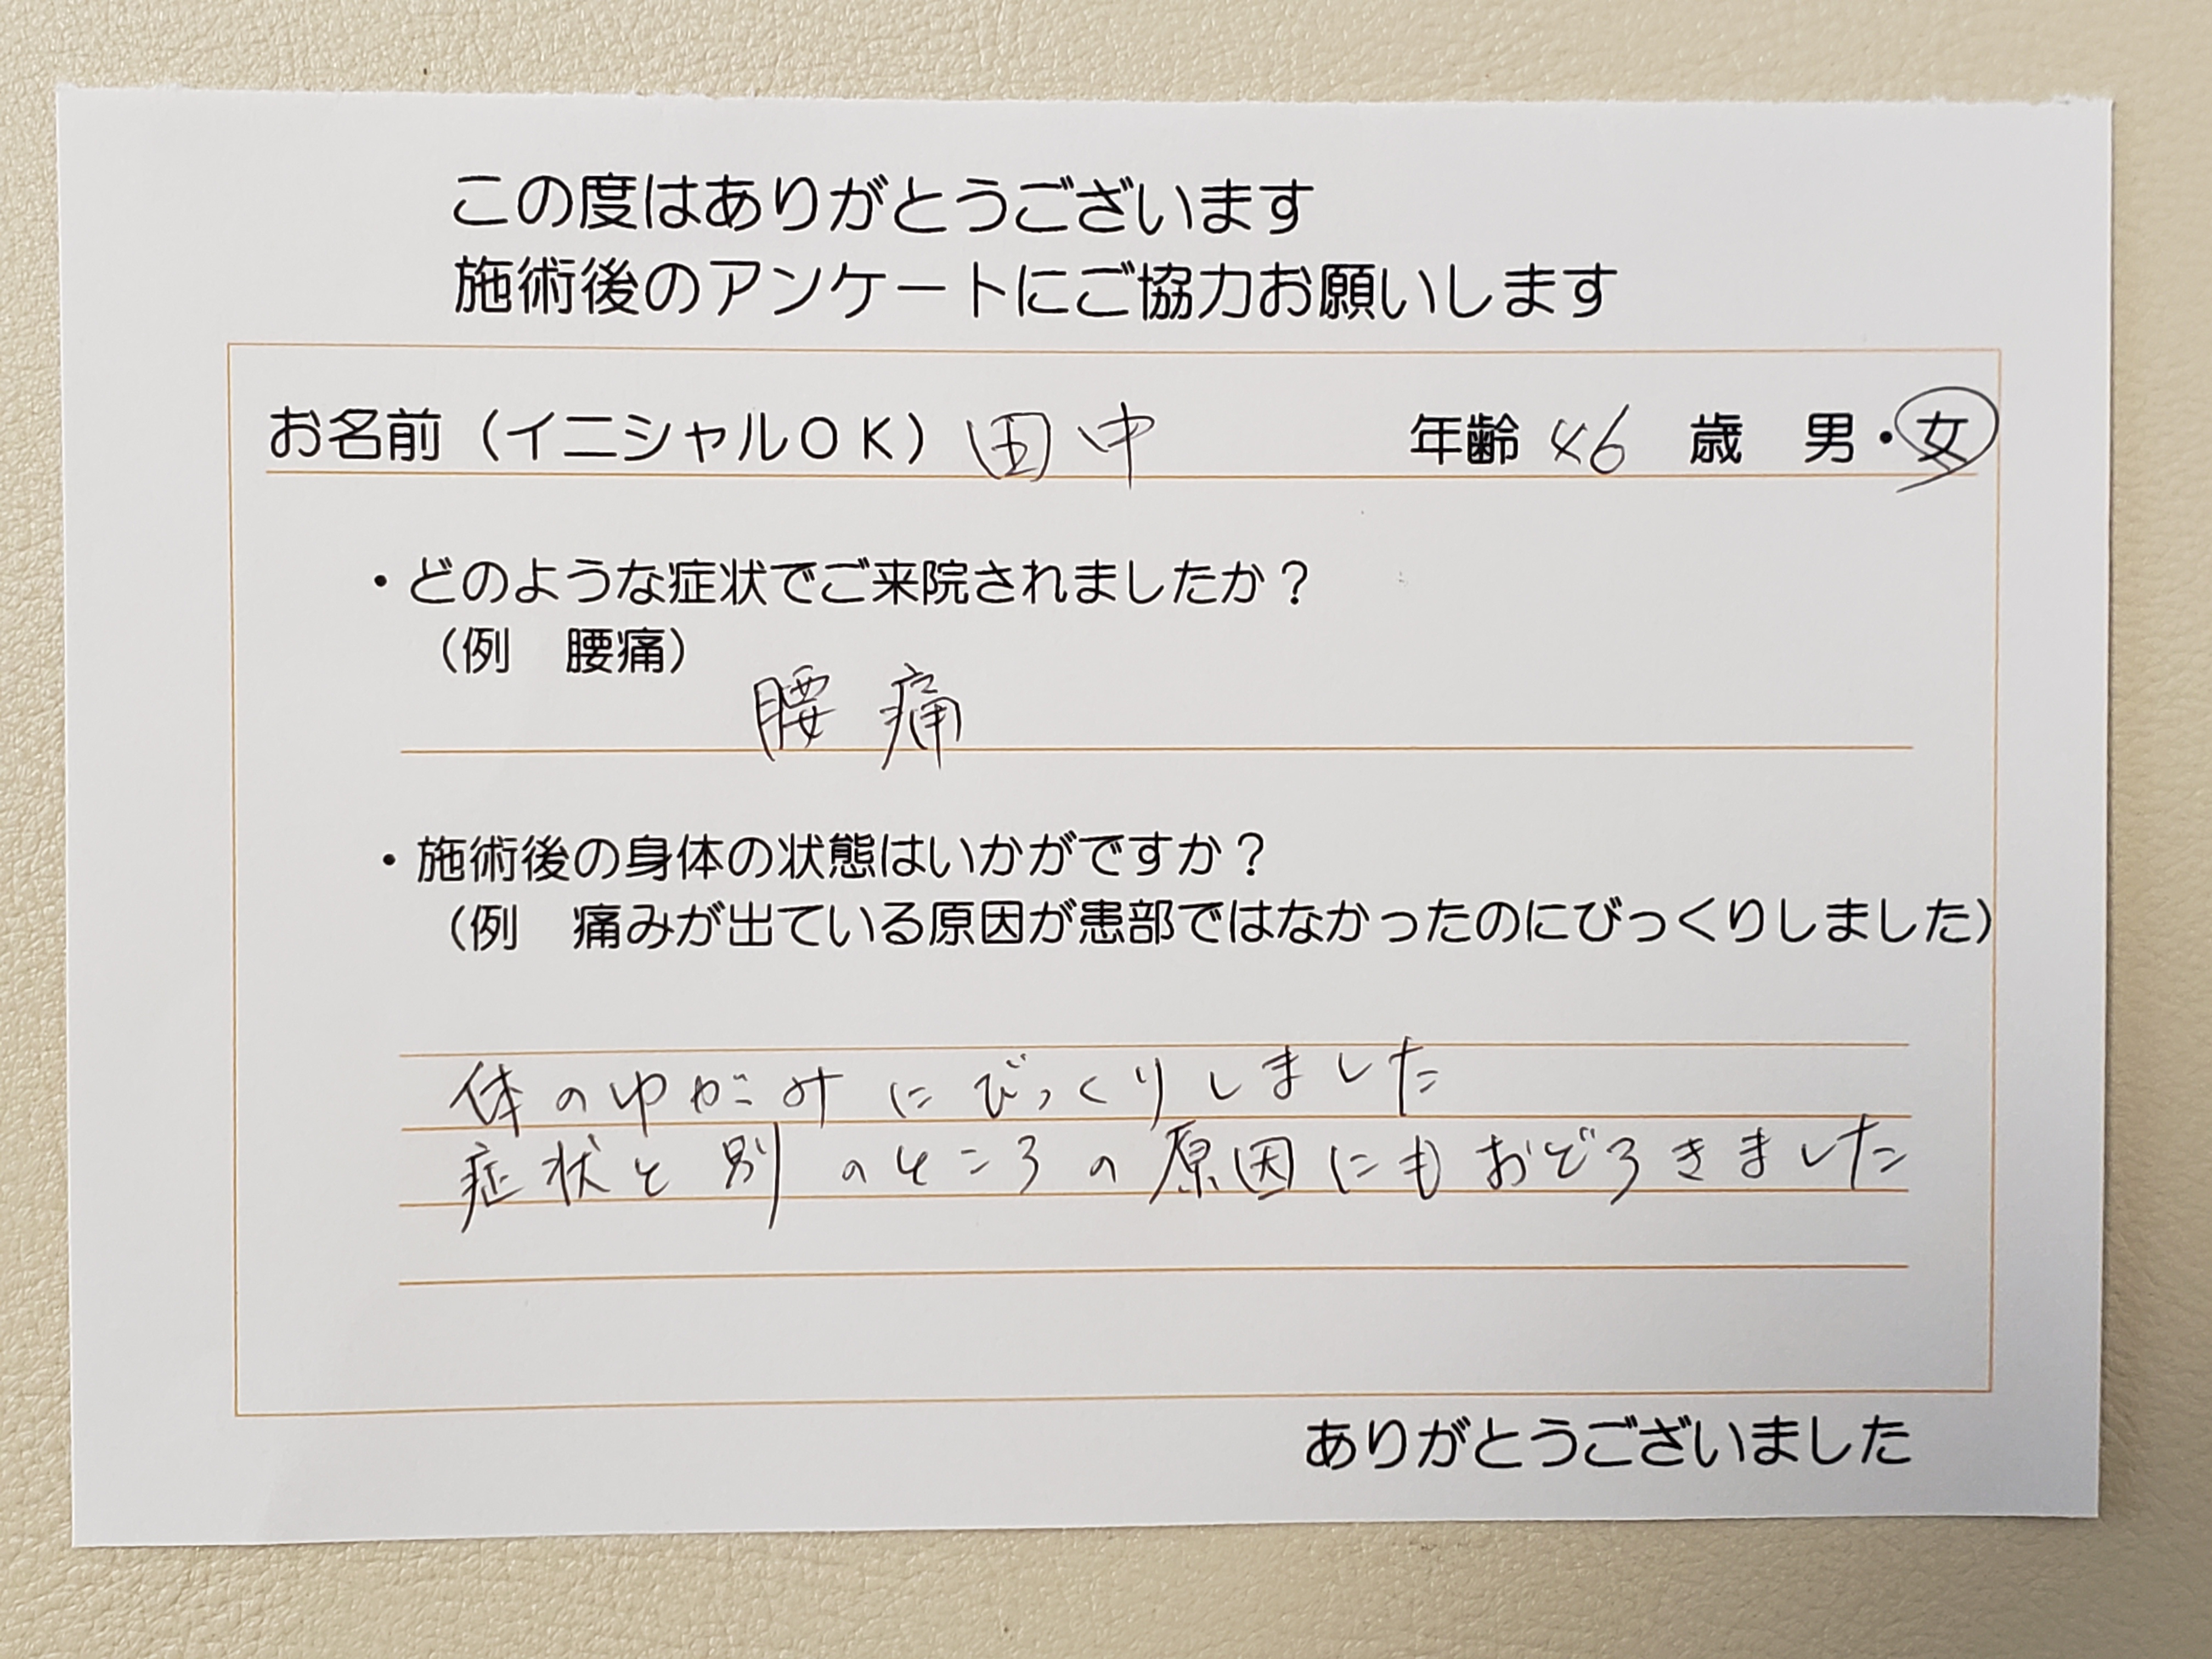 この度はありがとうございます
施術後のアンケートにご協力お願いします
お名前（イニシャルＯＫ）田中　年齢 46 歳　男・女
・どのような症状でご来院されましたか？
（例　腰痛）
腰痛
・施術後の身体の状態はいかがですか？
（例　痛みが出ている原因が患部ではなかったのにびっくりしました）
体のゆがみにびっくりしました
症状と別のところの原因にもおどろきました
ありがとうございました